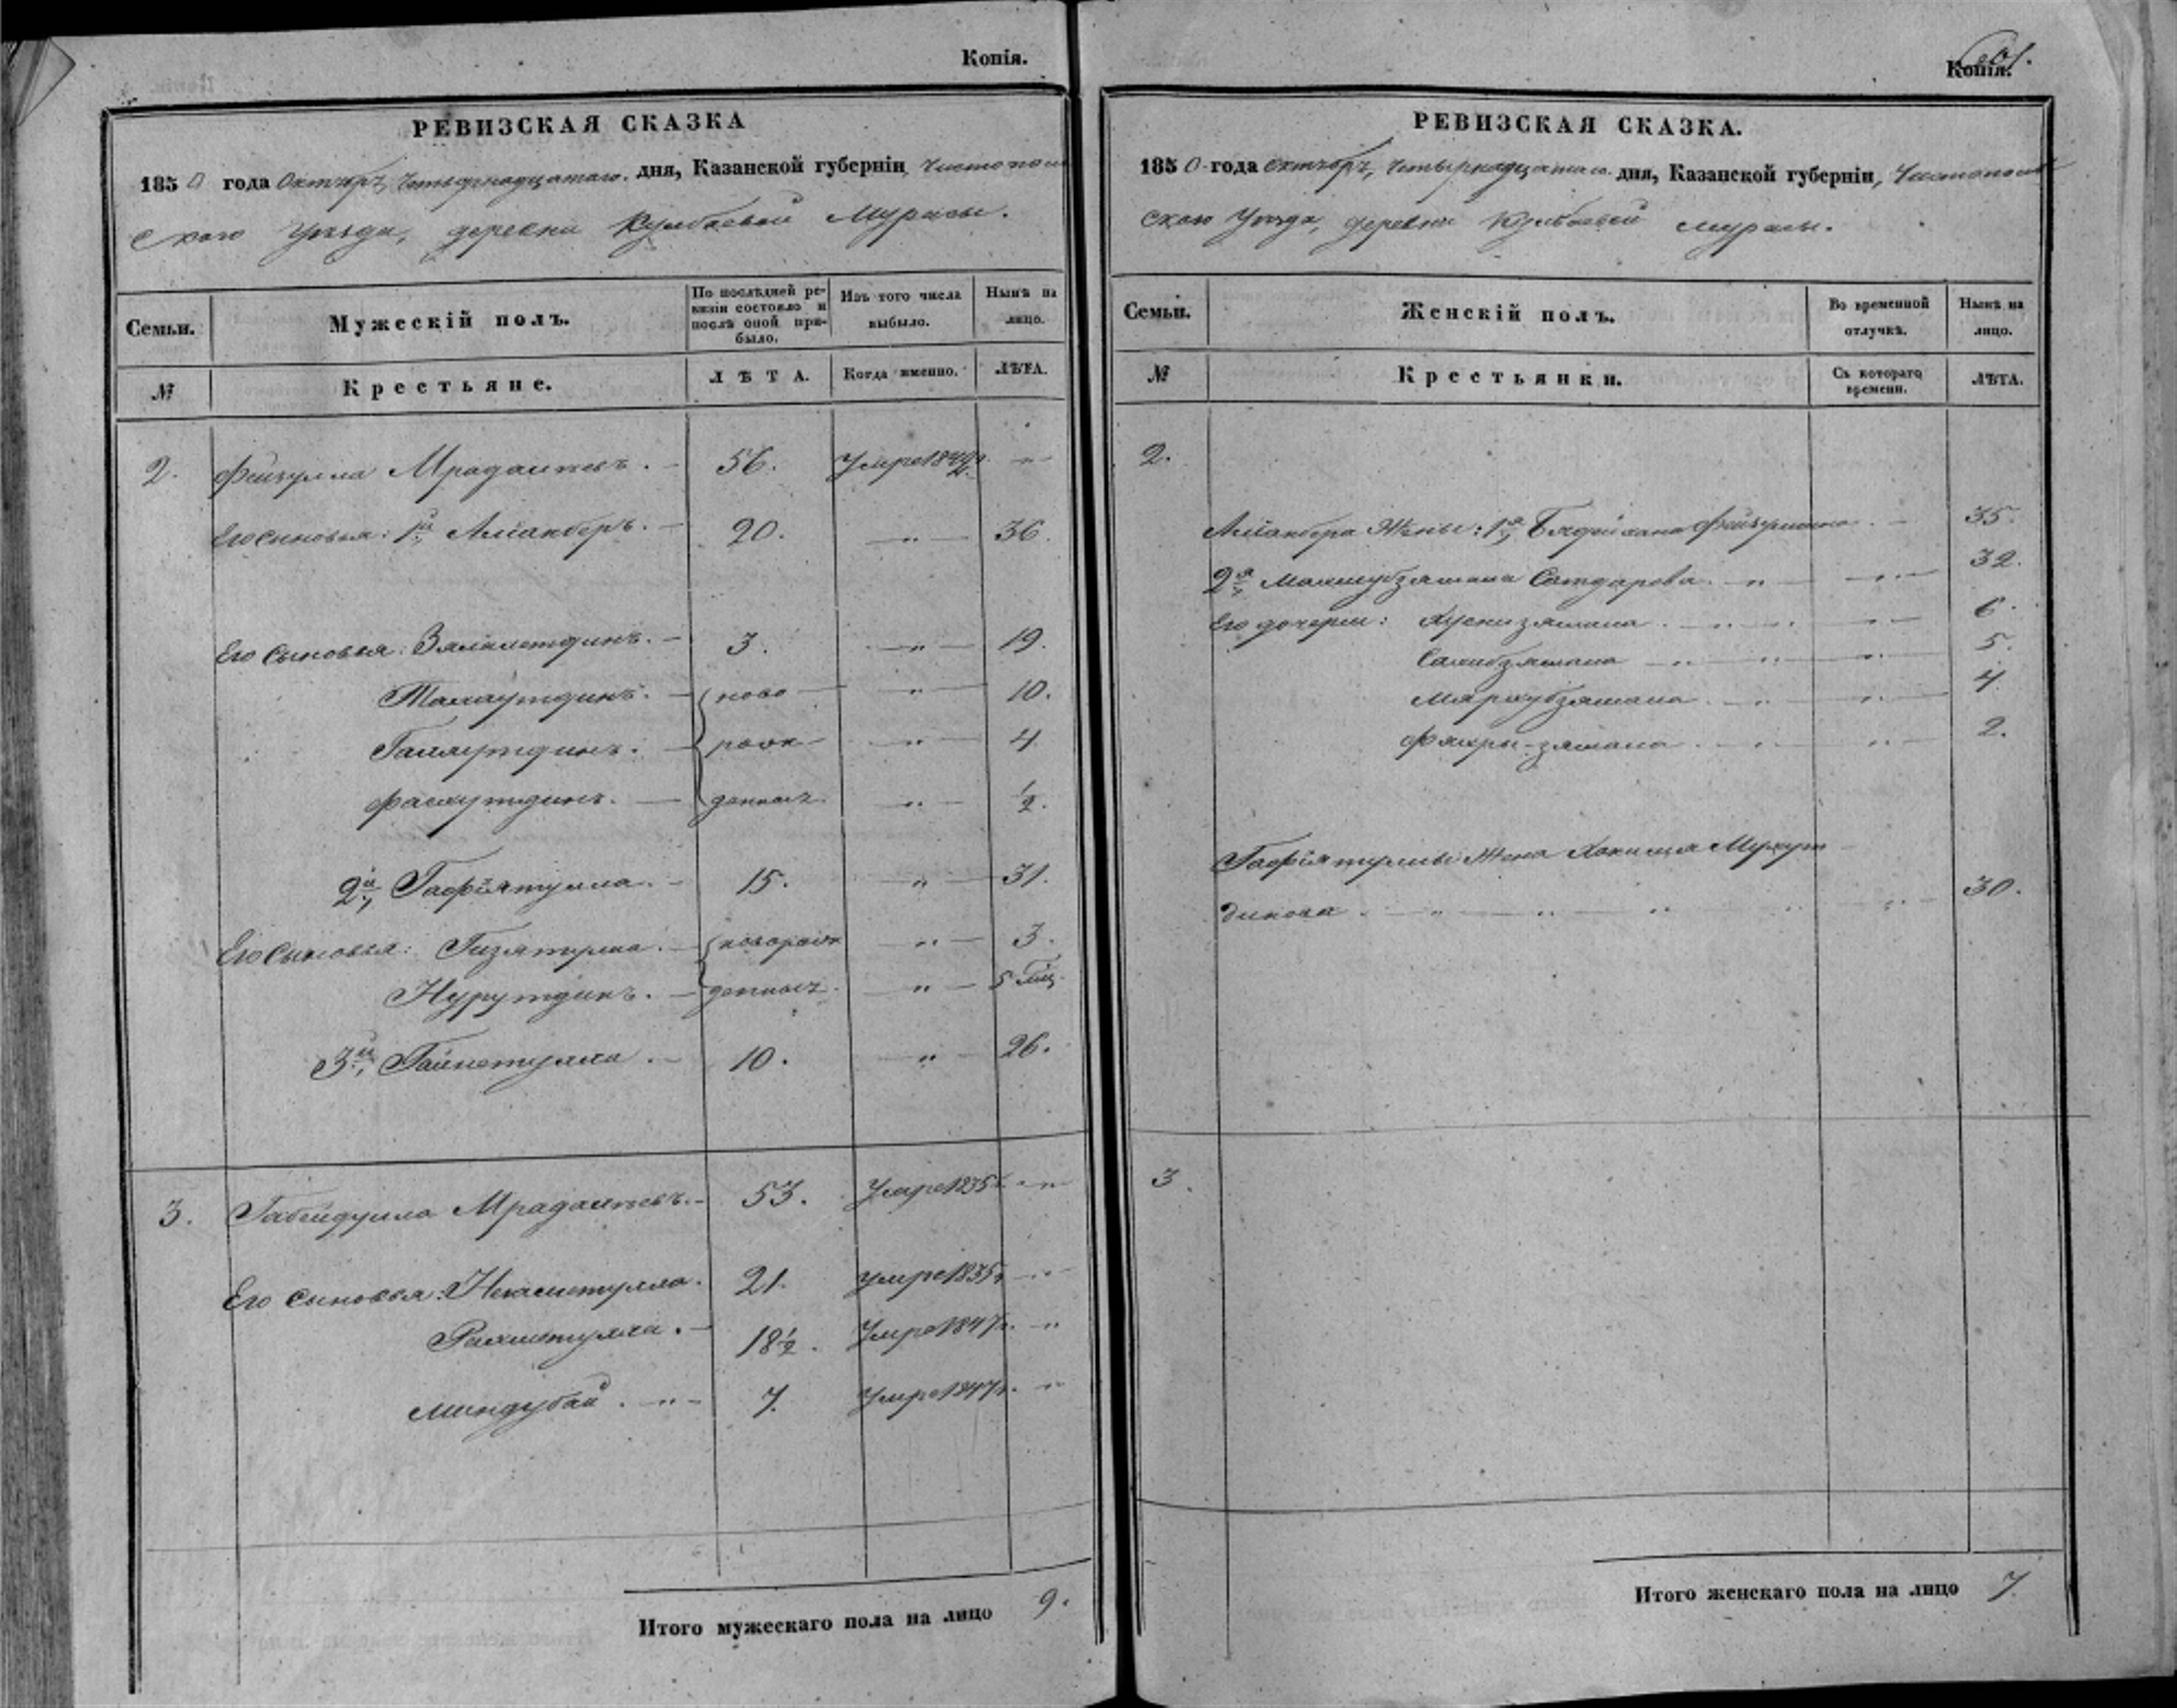 Копія.
РЕВИЗСКАЯ СКАЗКА
1850 года Октября четырнадцатаго дня, Казанской губерніи, Чистополь
скаго Уѣзда, деревни Кулбаевой Мурасы.
Семьи. Мужескій полъ. По послѣдней ревизіи состояло и послѣ оной прибыло. Изъ того числа выбыло. Нынѣ на лицо.
№ Крестьяне. ЛѢТА. Когда именно. ЛѢТА.
2. Фейзулла Мрадалеевъ. 56. Умре 184 "
Его сыновья: 1й Аліакберъ. 20. " 36.
Его сыновья: Зялялетдинъ. 3. " 19.
ново " 10.
рож " 4.
Фасхутдинъ. денныхъ " ½.
2й, Гафіятулла. 15. " 31.
Его сыновья: Гизятулла. новорож " 3.
Нурутдинъ. денныхъ. " 5 мц.
3й, Гайнетулла. 10. " 26.
3. Габейдулла Мрадалеевъ. 53. Умре 1835 "
Его сыновья: Негаметулла. 21. Умре 1835 "
Рахметулла. 18½. Умре 1847 "
Миндубай. " 7. Умре 1847 "
Итого мужескаго пола на лицо 9.
Копія.
РЕВИЗСКАЯ СКАЗКА.
1850 года Октября четырнадцатаго дня, Казанской губерніи, Чистополь
скаго Уѣзда, деревни Кулбаевой Мурасы.
Семьи. Женскій полъ. Во временной отлучкѣ. Нынѣ на лицо.
№ Крестьянки. Съ котораго времени. ЛѢТА.
2.
Аліакбера Жены: 1я, Фейзуллина. 35.
2я, Сатдарова. " " 32.
Его дочери: Хуснизямала. " " " 6.
Сахибзямала " " " 5.
Мярхубзямала. " " 4.
Фахры-зямала. " " " 2.
Гафіятуллы Жена Мухут
динова. " " " " " 30.
3.
Итого женскаго пола на лицо 7.